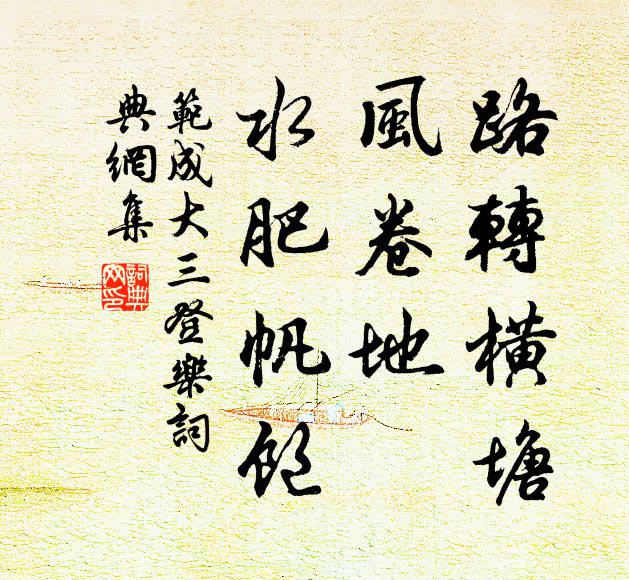 路轉橫塘
風卷地
水肥帆飽
範成大三登樂詞
典網集
詞典网印